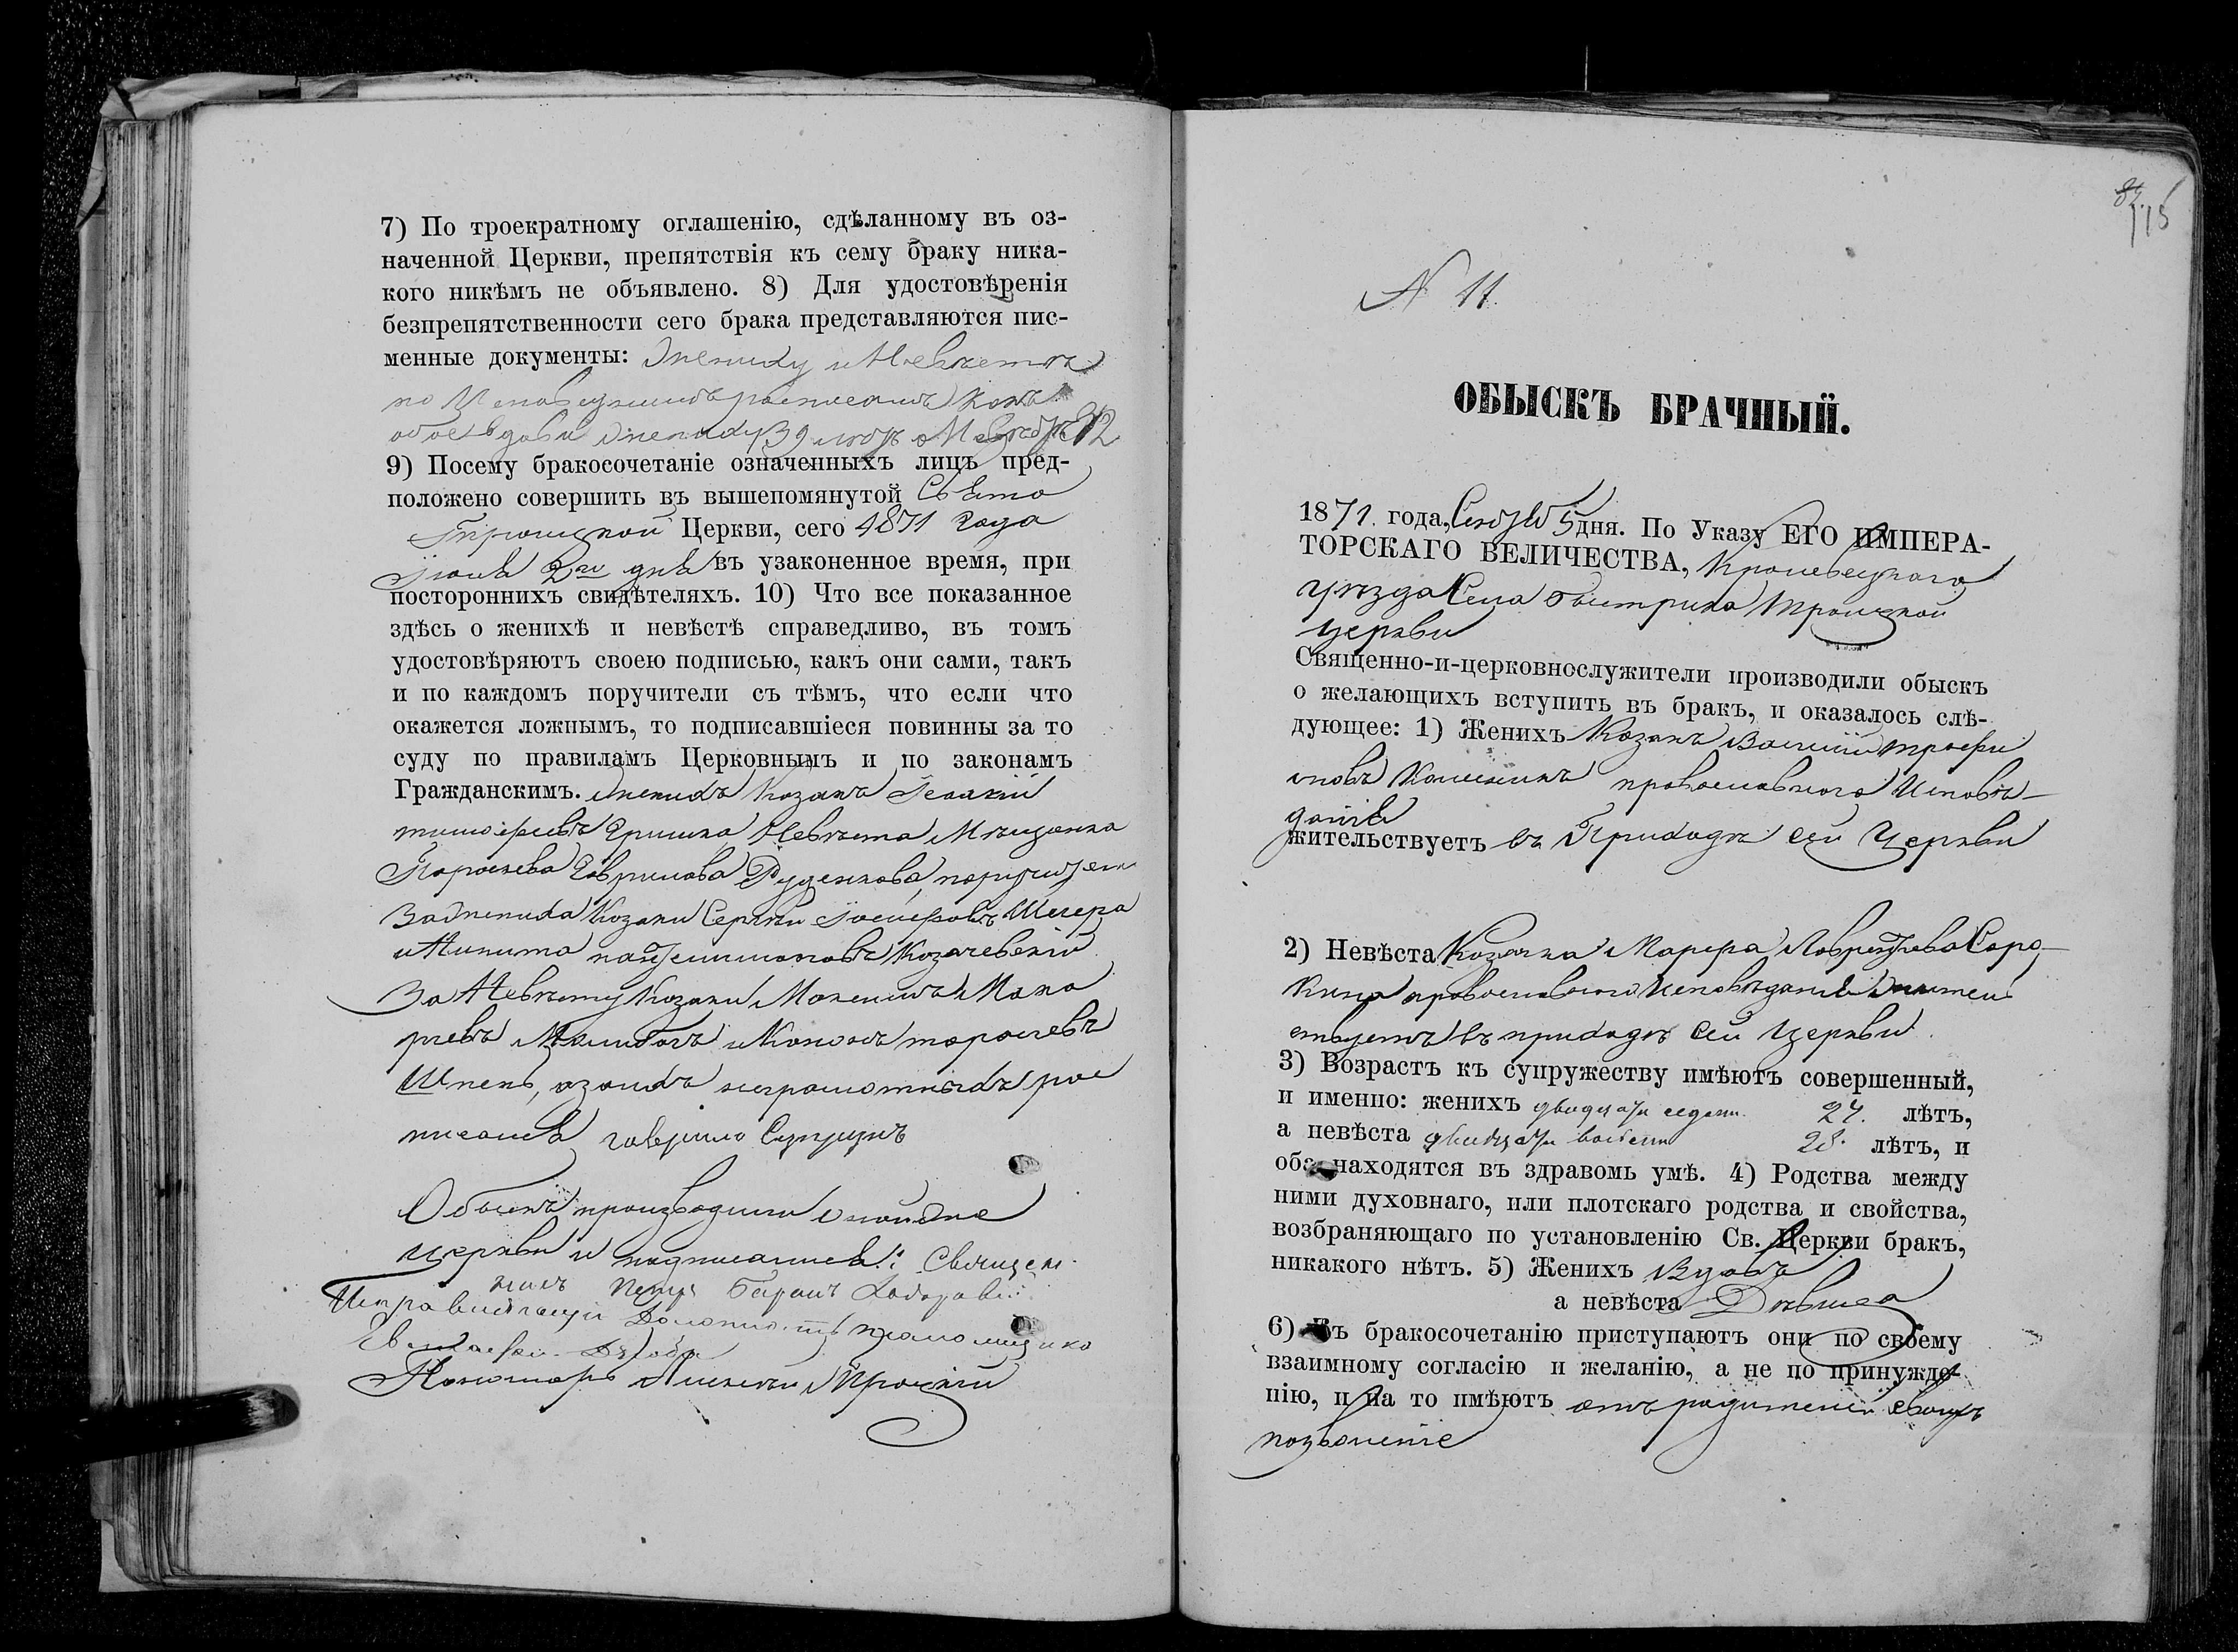 7) По троекратному оглашенію, сдѣланному въ оз-
наченной Церкви, препятствія къ сему браку ника-
кого никѣмъ не объявлено. 8) Для удостовѣренія
безпрепятственности сего брака представляются пис-
менные документы: Жениху и Невѣстѣ
по Исповеднимъ росписямъ какъ
обое вдови Жениху 39 лѣтъ а Невѣстѣ 32
9) Посему бракосочетаніе означенныхъ лицъ пред-
положено совершить въ вышепомянутой Свято
Троицкой Церкви, сего 1871 года
Іюля 2го дня въ узаконенное время, при
постороннихъ свидѣтеляхъ. 10) Что все показанное
здѣсь о женихѣ и невѣстѣ справедливо, въ томъ
удостовѣряютъ своею подписью, какъ они сами, такъ
и по каждомъ поручители съ тѣмъ, что если что
окажется ложнымъ, то подписавшіеся повинны за то
суду по правиламъ Церковнымъ и по законамъ
Гражданскимъ. Женихъ Козакъ Исаакій
тимофеевъ Гришка Невѣста Мѣщанка
Параскева Гаврилова Руденкова, поручители
За жениха Козаки Сергѣй Іосифовъ Шегера
и Никита Козачевскій
За Невѣсту Козаки Максимъ Мака
ріевъ и Кононъ тарасіевъ
Шпень, а за нихъ неграмотныхъ рос
писался гаврило Супрунъ
Обыскъ производили сей же
церкви и подписались: Священ
никъ Петръ
Исправляющій Должность псаломщика
Евстафій
Пономарь Алексѣй Троцкій
87.
115
N 11.
ОБЫСКЪ БРАЧНЫЙ.
1871. года, Сентября 5 дня. По Указу ЕГО ИМПЕРА-
ТОРСКАГО ВЕЛИЧЕСТВА, Кролевецкаго
уѣзда Села Быстрика Троицкой
церкви
Священно-и-церковнослужители производили обыскъ
о желающихъ вступить въ бракъ, и оказалось слѣ-
дующее: 1) Женихъ Козакъ Василій трофи
мовъ православного Исповѣ-
данія
жительствуетъ въ Приходѣ сей Церкви
2) Невѣста Козачка Марфа Лаврентіева Соро
кина православного Исповѣданія жител
ствуетъ въ приходѣ сей церкви
3) Возрастъ къ супружеству имѣютъ совершенный,
и именно: женихъ двадцати седми 27. лѣтъ,
а невѣста двадцати восеми 28. лѣтъ, и
оба находятся въ здравомъ умѣ. 4) Родства между
ними духовнаго, или плотскаго родства и свойства,
возбраняющаго по установленію Св. Церкви бракъ,
никакого нѣтъ. 5) Женихъ Вдовъ
а невѣста Дѣвица
6) Въ бракосочетанію приступаютъ они по своему
взаимному согласію и желанію, а не по принужде-
нію, и на то имѣютъ отъ родителей своихъ
позволеніе